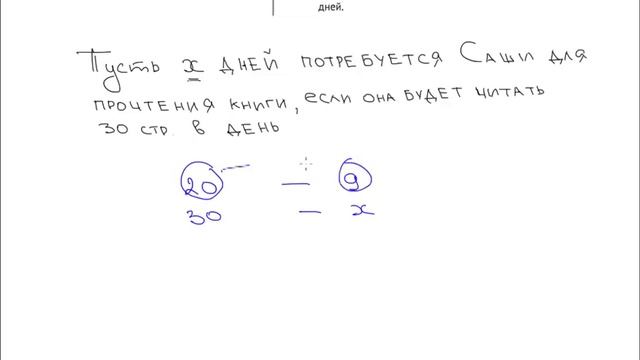 дней.
Пусть x дней потребуется Саши для
прочтения книги, если она будет читать
30 стр. в день
20 — 9
30 — x